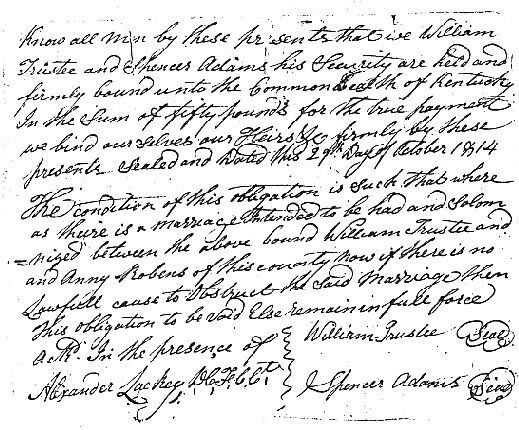 Know all men by these presents that we William
Trustee and Spencer Adams his Security are held and
firmly bound unto the Common Wealth of Kentucky
In the Sum of fifty pounds for the true payment
we bind ourselves our Heirs &c firmly by these
presents Sealed and Dated this 29th Day of October 1814
The condition of this obligation is such that where
as there is a marriage Intended to be had and Solom
=nized between the above bound William Trustee and
and Anny Robens of this county Now if there is no
Lawfull cause to Obstruct the said Marriage then
this obligation to be void Else remain in full force
In the presence of
William Trustee Seal
Alexander Lackey
Spencer Adams Seal